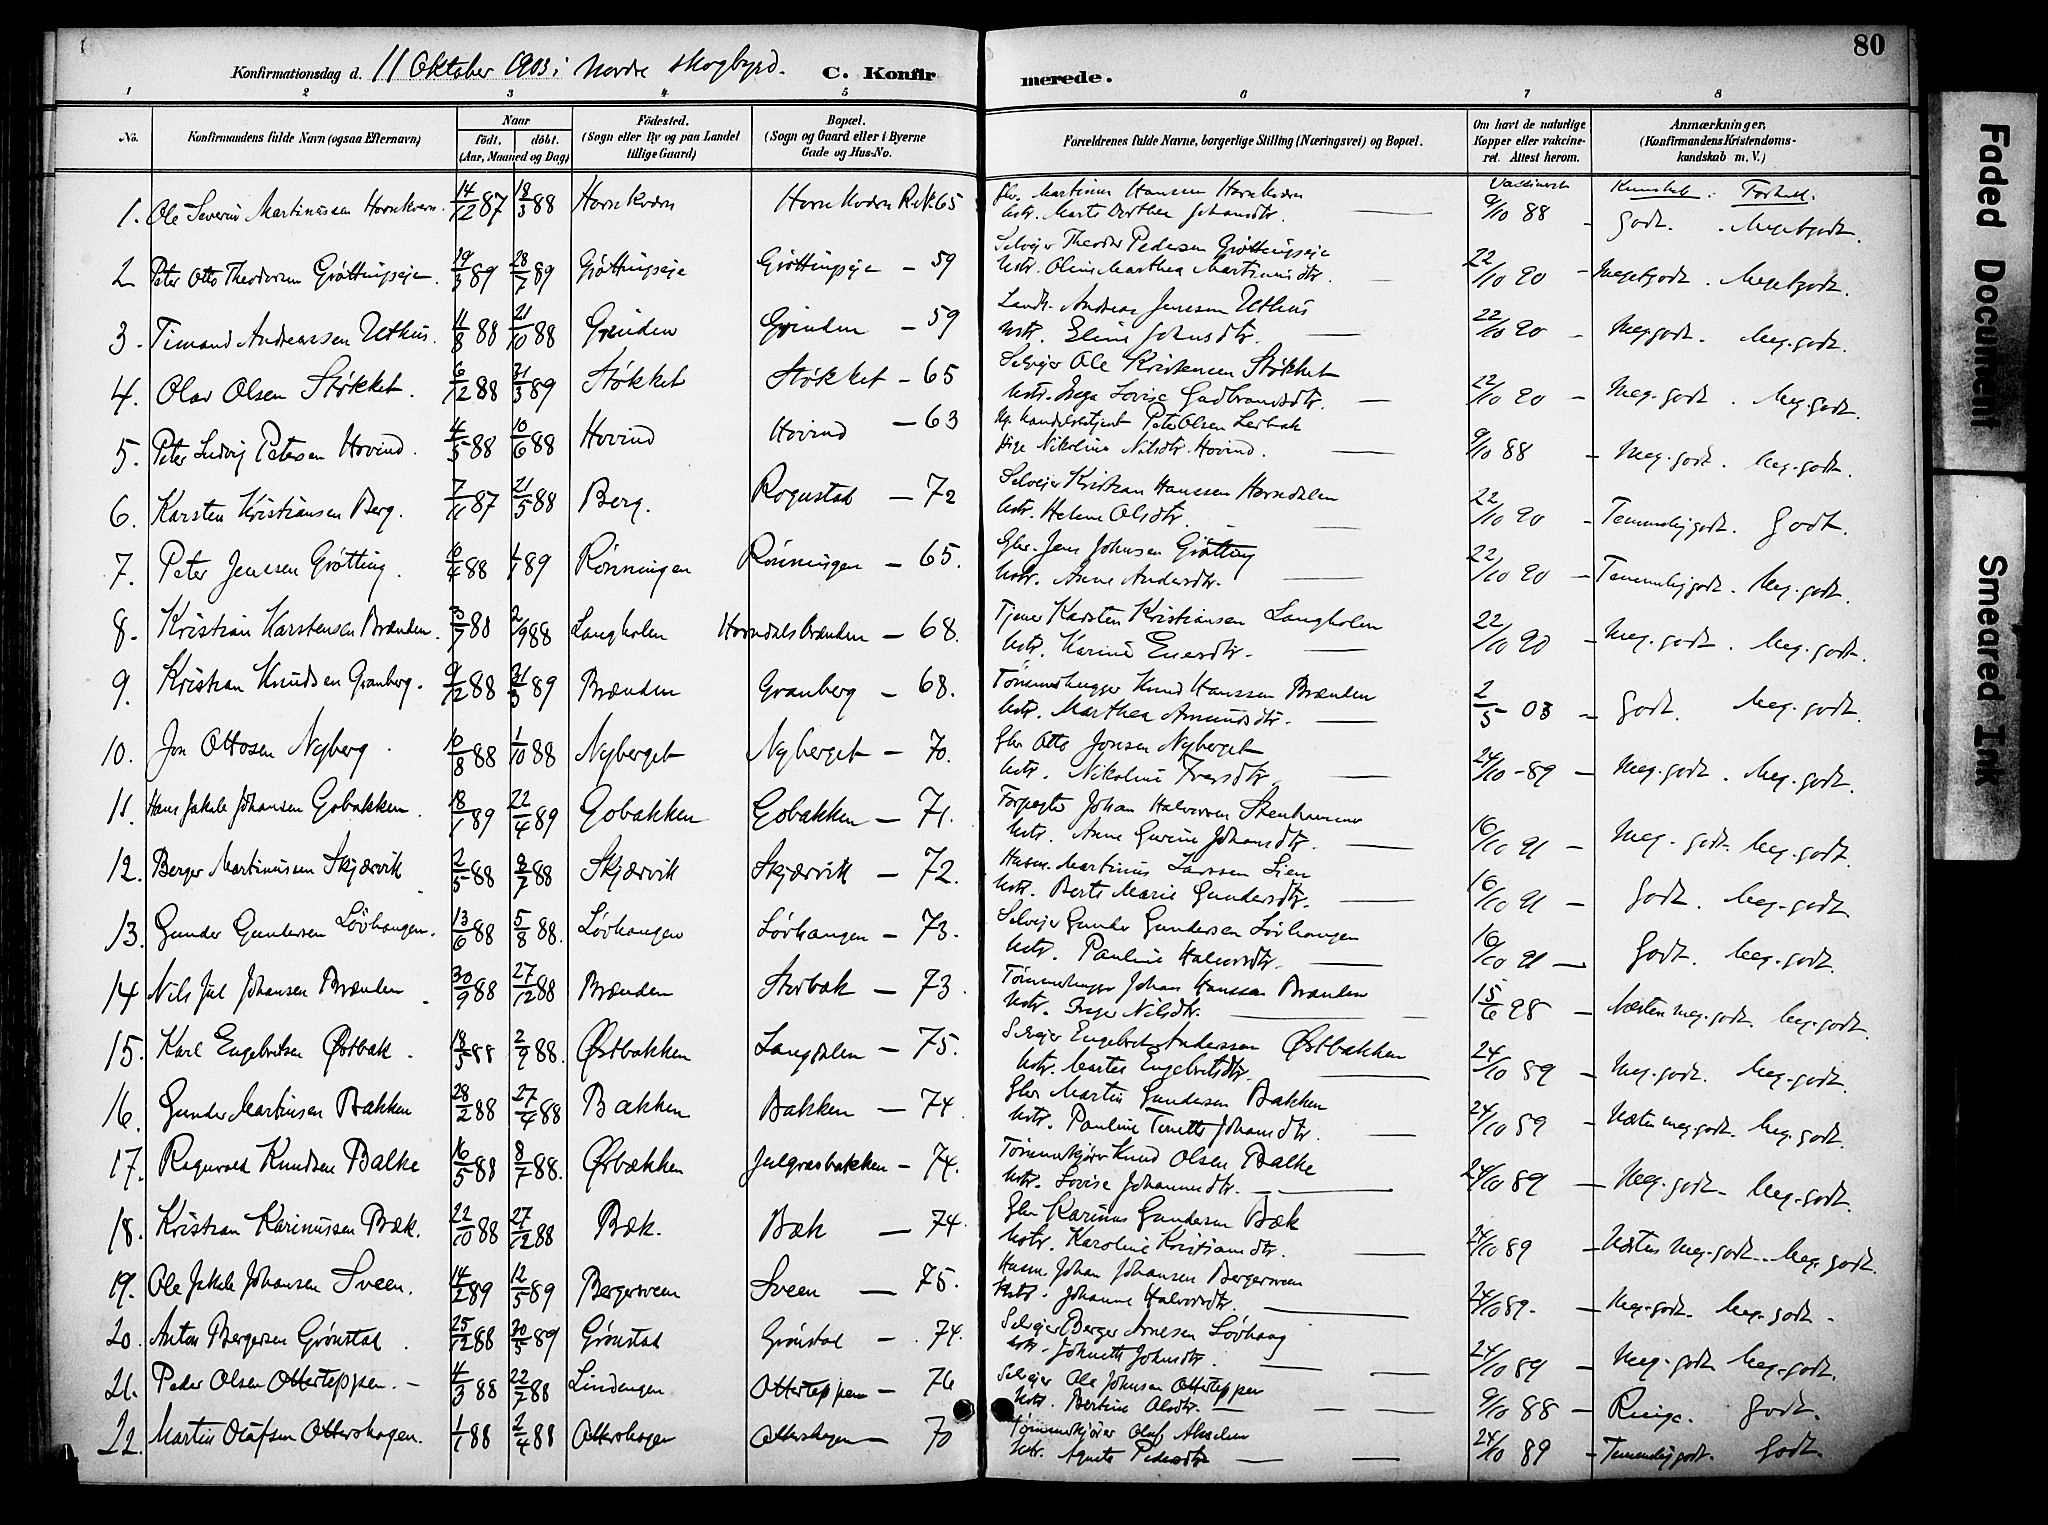 80
Konfirmationsdag d. 11 Oktober 1903 i Nordre Skogbygd. C. Konfirmerede.
1 2 3 4 5 6 7 8
No. Konfirmandens fulde Navn (ogsaa Efternavn) Naar født. døbt. (Aar, Maaned og Dag) Fødested. (Sogn eller By og paa Landet tillige Gaard) Bopæl. (Sogn og Gaard eller i Byerne Gade og Hus-No. Forældrenes fulde Navne, borgerlige Stilling (Næringsvei) og Bopæl. Om havt de naturlige Kopper eller vakcineret. Attest herom. Anmærkninger. (Konfirmandens Kristendomskundskab m. V.)
1. Ole Severin Martinussen Hornkvern. 14/12 87 18/3 88 Hornkvern Hornkvern R.N. 65 Martinus Hansen Hornkvern 9/10 88 – Godt. Megetgodt.
Hstr. Marte Dorthea Johansdtr.
2 Peter Otto Theodorsen Grøttingseie. 19/3 89 28/7 89 Grøttingseie Grøttingseie – 59 Selveier Theodor Pedersen Grøttingseie 22/10 90 – Megetgodt. Megetgodt.
Hstr. Oline Marthea Martinusdtr.
3. Timand Andreassen Uthus. 11/8 88 21/10 88 Grinden Grinden – 59 Andreas Jensen Uthus 22/10 90 – Meg. godt. Meg. godt.
Hstr. Eline Johnsdtr.
4. Olav Olsen Støkket. 6/12 88 31/3 89 Støkket Støkket – 65 Selveier Ole Kristensen Støkket 22/10 90 – Meg. godt. Meg. godt.
Hstr. Inga Lovise Gudbrandsdtr.
5. Peter Ludvig Petersen Hovind. 4/5 88 10/6 88 Hovind Hovind – 63 Handelsbetjent Peter Olsen Lerbak 9/10 88 – Meg. godt. Meg. godt.
Pige Nikoline Nilsdtr. Hovind.
6. Karsten Kristiansen Berg. 7/11 87 21/5 88 Berg. Rogustad – 72 Selveier Kristian Hanssen Horndalen 22/10 90 – Temmelig godt. Godt.
Hstr. Helene Olsdtr.
7. Peter Jenssen Grøtting. 6/4 88 1/1 89 Rønningen Rønningen – 65. Gbr. Jens Johnsen Grøtting 22/10 90 – Temmelig godt. Meg. godt.
Hstr. Anne Andersdtr.
8. Kristian Karstensen Brænden. 3/7 88 2/9 88 Langholen Horndalsbrænden – 68. Tjener Karsten Kristiansen Langholen 22/10 90 Meg. godt. Meg. godt.
Hstr. Karine Enersdtr.
9. Kristian Knudsen Granberg. 9/12 88 31/3 89 Brænden Granberg – 68. Tømmerhugger Knud Hanssen Brænden 2/5 03 – Godt. Meg. godt.
Hstr. Marthea Amundsdtr.
10. Jon Ottosen Nyberg. 10/8 88 1/10 88 Nyberget Nyberget – 70. Gbr Otto Jonsen Nyberget 24/10 89 – Meg. godt. Meg. godt.
Hstr. Nikoline Iversdtr.
11. Hans Jakob Johansen Gobakken. 18/1 89 22/4 89 Gobakken Gobakken – 71. Forpagter Johan Halvorsen 16/10 91 – Meg. godt. Meg. godt.
Hstr. Anne Gurine Johansdtr.
12. Berger Martinussen Skjærvik 2/5 88 8/7 88 Skjærvik Skjærvik – 72. Husm. Martinus Larssen Lien 16/10 91 – Godt. Meg. godt.
Hstr. Berte Marie Gundersdtr.
13. Gunder Gundersen Løvhaugen. 13/6 88 5/8 88. Løvhaugen Løvhaugen – 73. Selveier Gunder Gundersen Løvhaugen 16/10 91 – Godt. Meg. godt.
Hstr. Pauline Halvorsdtr.
14 Nils Jul Johansen Brænden 30/9 88 27/12 88 Brænden Storbak – 73. Tømmerhugger Johan Hanssen Brænden 15/6 98 – Næsten meg. godt. Meg. godt.
Hstr. Inger Nilsdtr.
15. Karl Engebretsen Østbak. 18/5 88 2/9 88. Østbakken Langdalen – 75. Selveier Engebret Anderssen Østbakken 24/10 89 – Meg. godt. Meg. godt.
Hstr. Martea Engebretsdtr.
16. Gunder Martinsen Bakken 28/2 88 27/4 88 Bakken Bakken – 74. Gbr Martin Gundersen Bakken 24/10 89 – Næsten meg. godt. Meg. godt.
Hstr. Pauline Tinette Johansdtr.
17. Ragnvald Knudsen Balke 16/5 88 8/7 88. Ørbækken Julgræsbakken – 74. Tømmerkjører Knud Olsen Balke 24/10 89 – Meg. godt – Meg. godt.
Hstr. Lovise Johannesdtr.
18. Kristian Karinussen Bæk. 22/10 88 27/12 88 Bæk. Bæk – 74. Gbr Karinus Gundersen Bæk 24/10 89 – Næsten meg. godt. Meg. godt.
Hstr. Karoline Kristiansdtr.
19. Ole Jakob Johansen Sveen. 14/2 89 12/5 89 Bergersveen Sveen – 75. Husm. Johan Johansen Bergersveen 24/10 89. – Meg. godt. Meg. godt.
Hstr. Johanne Halvorsdtr.
20. Anton Bergersen Grønstad. 25/12 88 30/5 89 Grønstad Grønstad – 74. Selveier Berger Arnesen Løvhaug 24/10 89 – Meg. godt Meg. godt.
Hstr. Johnette Johnsdtr.
21. Peder Olsen Otterteppen. – 4/3 88 22/7 88 Lindengen Otterteppen – 76 Selveier Ole Johnsen Otterteppen 9/10 88 – Ringe. Godt.
Hstr. Bertine Olsdtr.
22. Martin Olafsen Otterskogen. 1/1 88 2/4 88 Otterskogen Otterskogen – 70 Tømmerkjører Olaf 24/10 89 – Temmelig godt. Godt.
Hstr. Agnete Pedersdtr
Faded Document
Smeared Ink